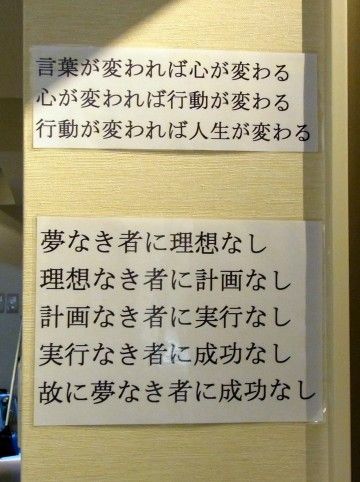 言葉が変われば心が変わる
心が変われば行動が変わる
行動が変われば人生が変わる
夢なき者に理想なし
理想なき者に計画なし
計画なき者に実行なし
実行なき者に成功なし
故に夢なき者に成功なし